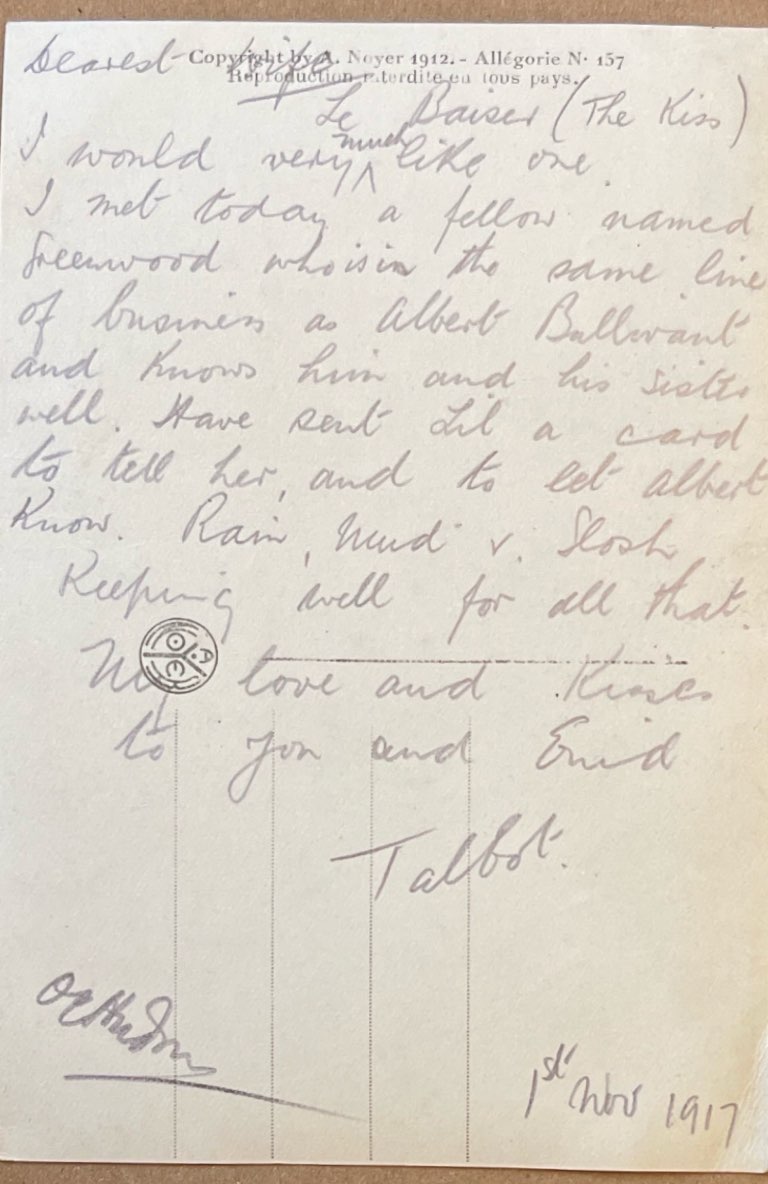 Copyright by A. Noyer 1912. - Allégorie N· 157
Reproduction interdite en tous pays.
Dearest Wife
Le Baiser (The Kiss)
I would very much like one.
I met today a fellow named
Greenwood who is in the same line
of business as Albert Bullivant
and knows him and his sister
well. Have sent Lil a card
to tell her, and to let Albert
know. Rain, Mud v. Slosh
Keeping well for all that.
My love and Kisses
to you and Enid
Talbot.
1st Nov 1917